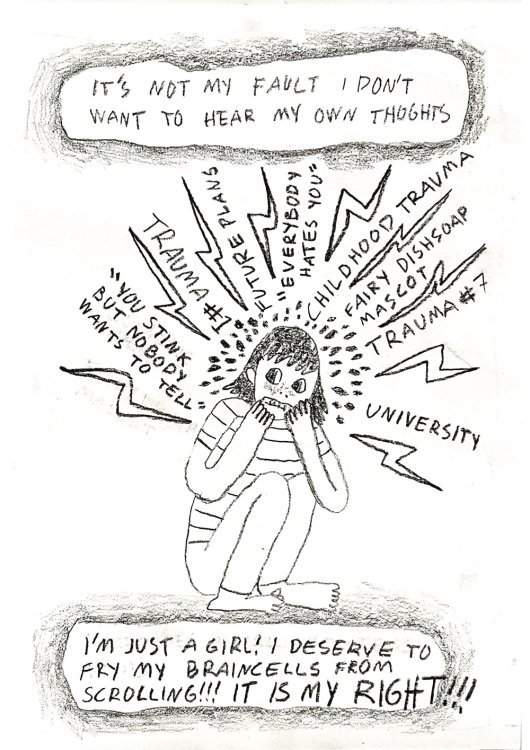 IT'S NOT MY FAULT I DON'T
WANT TO HEAR MY OWN THOGHTS
"YOU STINK
BUT NOBODY
WANTS TO TELL"
TRAUMA #1
FUTURE PLANS
"EVERYBODY
HATES YOU"
CHILDHOOD TRAUMA
FAIRY DISHSOAP
MASCOT
TRAUMA #7
UNIVERSITY
I'M JUST A GIRL! I DESERVE TO
FRY MY BRAINCELLS FROM
SCROLLING!!! IT IS MY RIGHT!!!